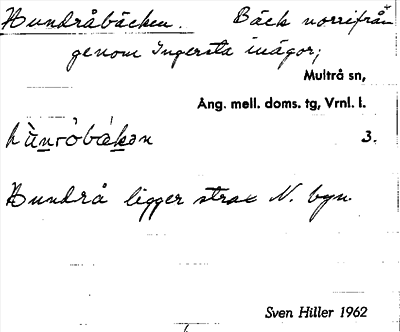 Hundråbäcken. Bäck norrifrån
genom Ingersta inägor;
Multrå sn,
Ång. mell. doms. tg, Vrnl. l.
3.
Hundrå ligger strax N. byn.
Sven Hiller 1962